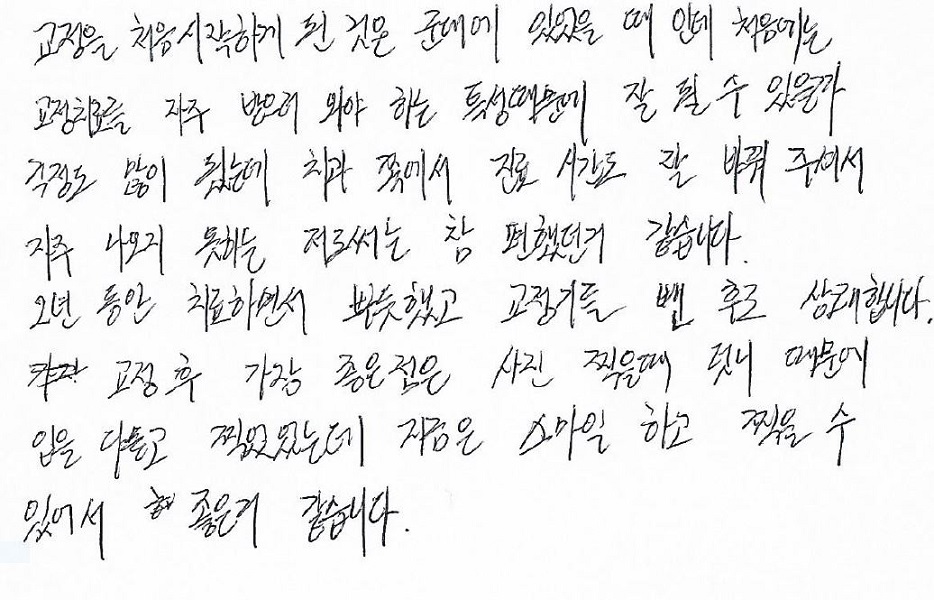 교정을 처음시작하게 된 것은 군대에 있었을 때 인데 처음에는
교정치료를 자주 받으러 와야 하는 특성때문에 잘 될 수 있을까
걱정도 많이 됬는데 치과 쪽에서 진료 시간도 잘 바꿔 주셔서
자주 나오지 못하는 저로써는 참 편했던거 같습니다.
2년 동안 치료하면서 뿌듯했고 교정기를 뺀 후로 상쾌합니다.
교정 후 가장 좋은점은 사진 찍을때 덧니 때문에
입을 다물고 찍었었는데 지금은 스마일 하고 찍을 수
있어서 좋은거 같습니다.